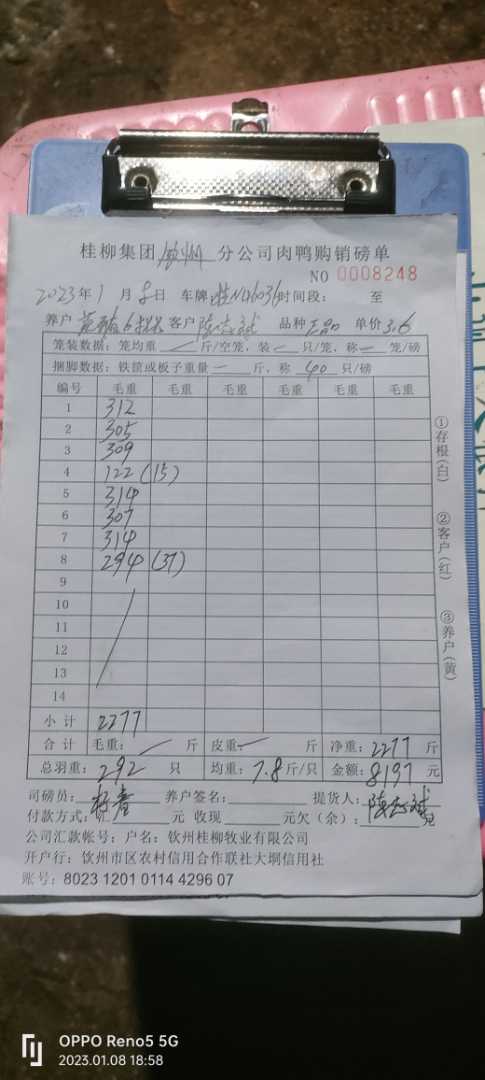 桂柳集团 钦州 分公司肉鸭购销磅单
NO 0008248
2023年 1 月 8日 车牌 桂N46036 时间段: 至
养户 客户 陈志斌 品种 正品 单价 3.6
笼装数据: 笼均重 斤/空笼, 装 只/笼, 称 笼/磅
捆脚数据: 铁筐或板子重量 一 斤, 称 40 只/磅
编号 毛重 毛重 毛重 毛重 毛重 毛重
1 312
2 305
3 309
4 122 (15)
5 314
6 307
7 314
8 294 (37)
9
10
11
12
13
14
小 计 2277
合 计 毛重: 斤 皮重: 斤 净重: 2277 斤
总羽重: 292 只 均重: 7.8 斤/只 金额: 8197 元
司磅员: 养户签名: 提货人: 陈志斌
付款方式: 元 收现 元欠(余):
公司汇款帐号: 户名: 钦州桂柳牧业有限公司
开户行: 钦州市区农村信用合作联社大垌信用社
账号: 8023 1201 0114 4296 07
①存根(白)
②客户(红)
③养户(黄)
OPPO Reno5 5G
2023.01.08 18:58